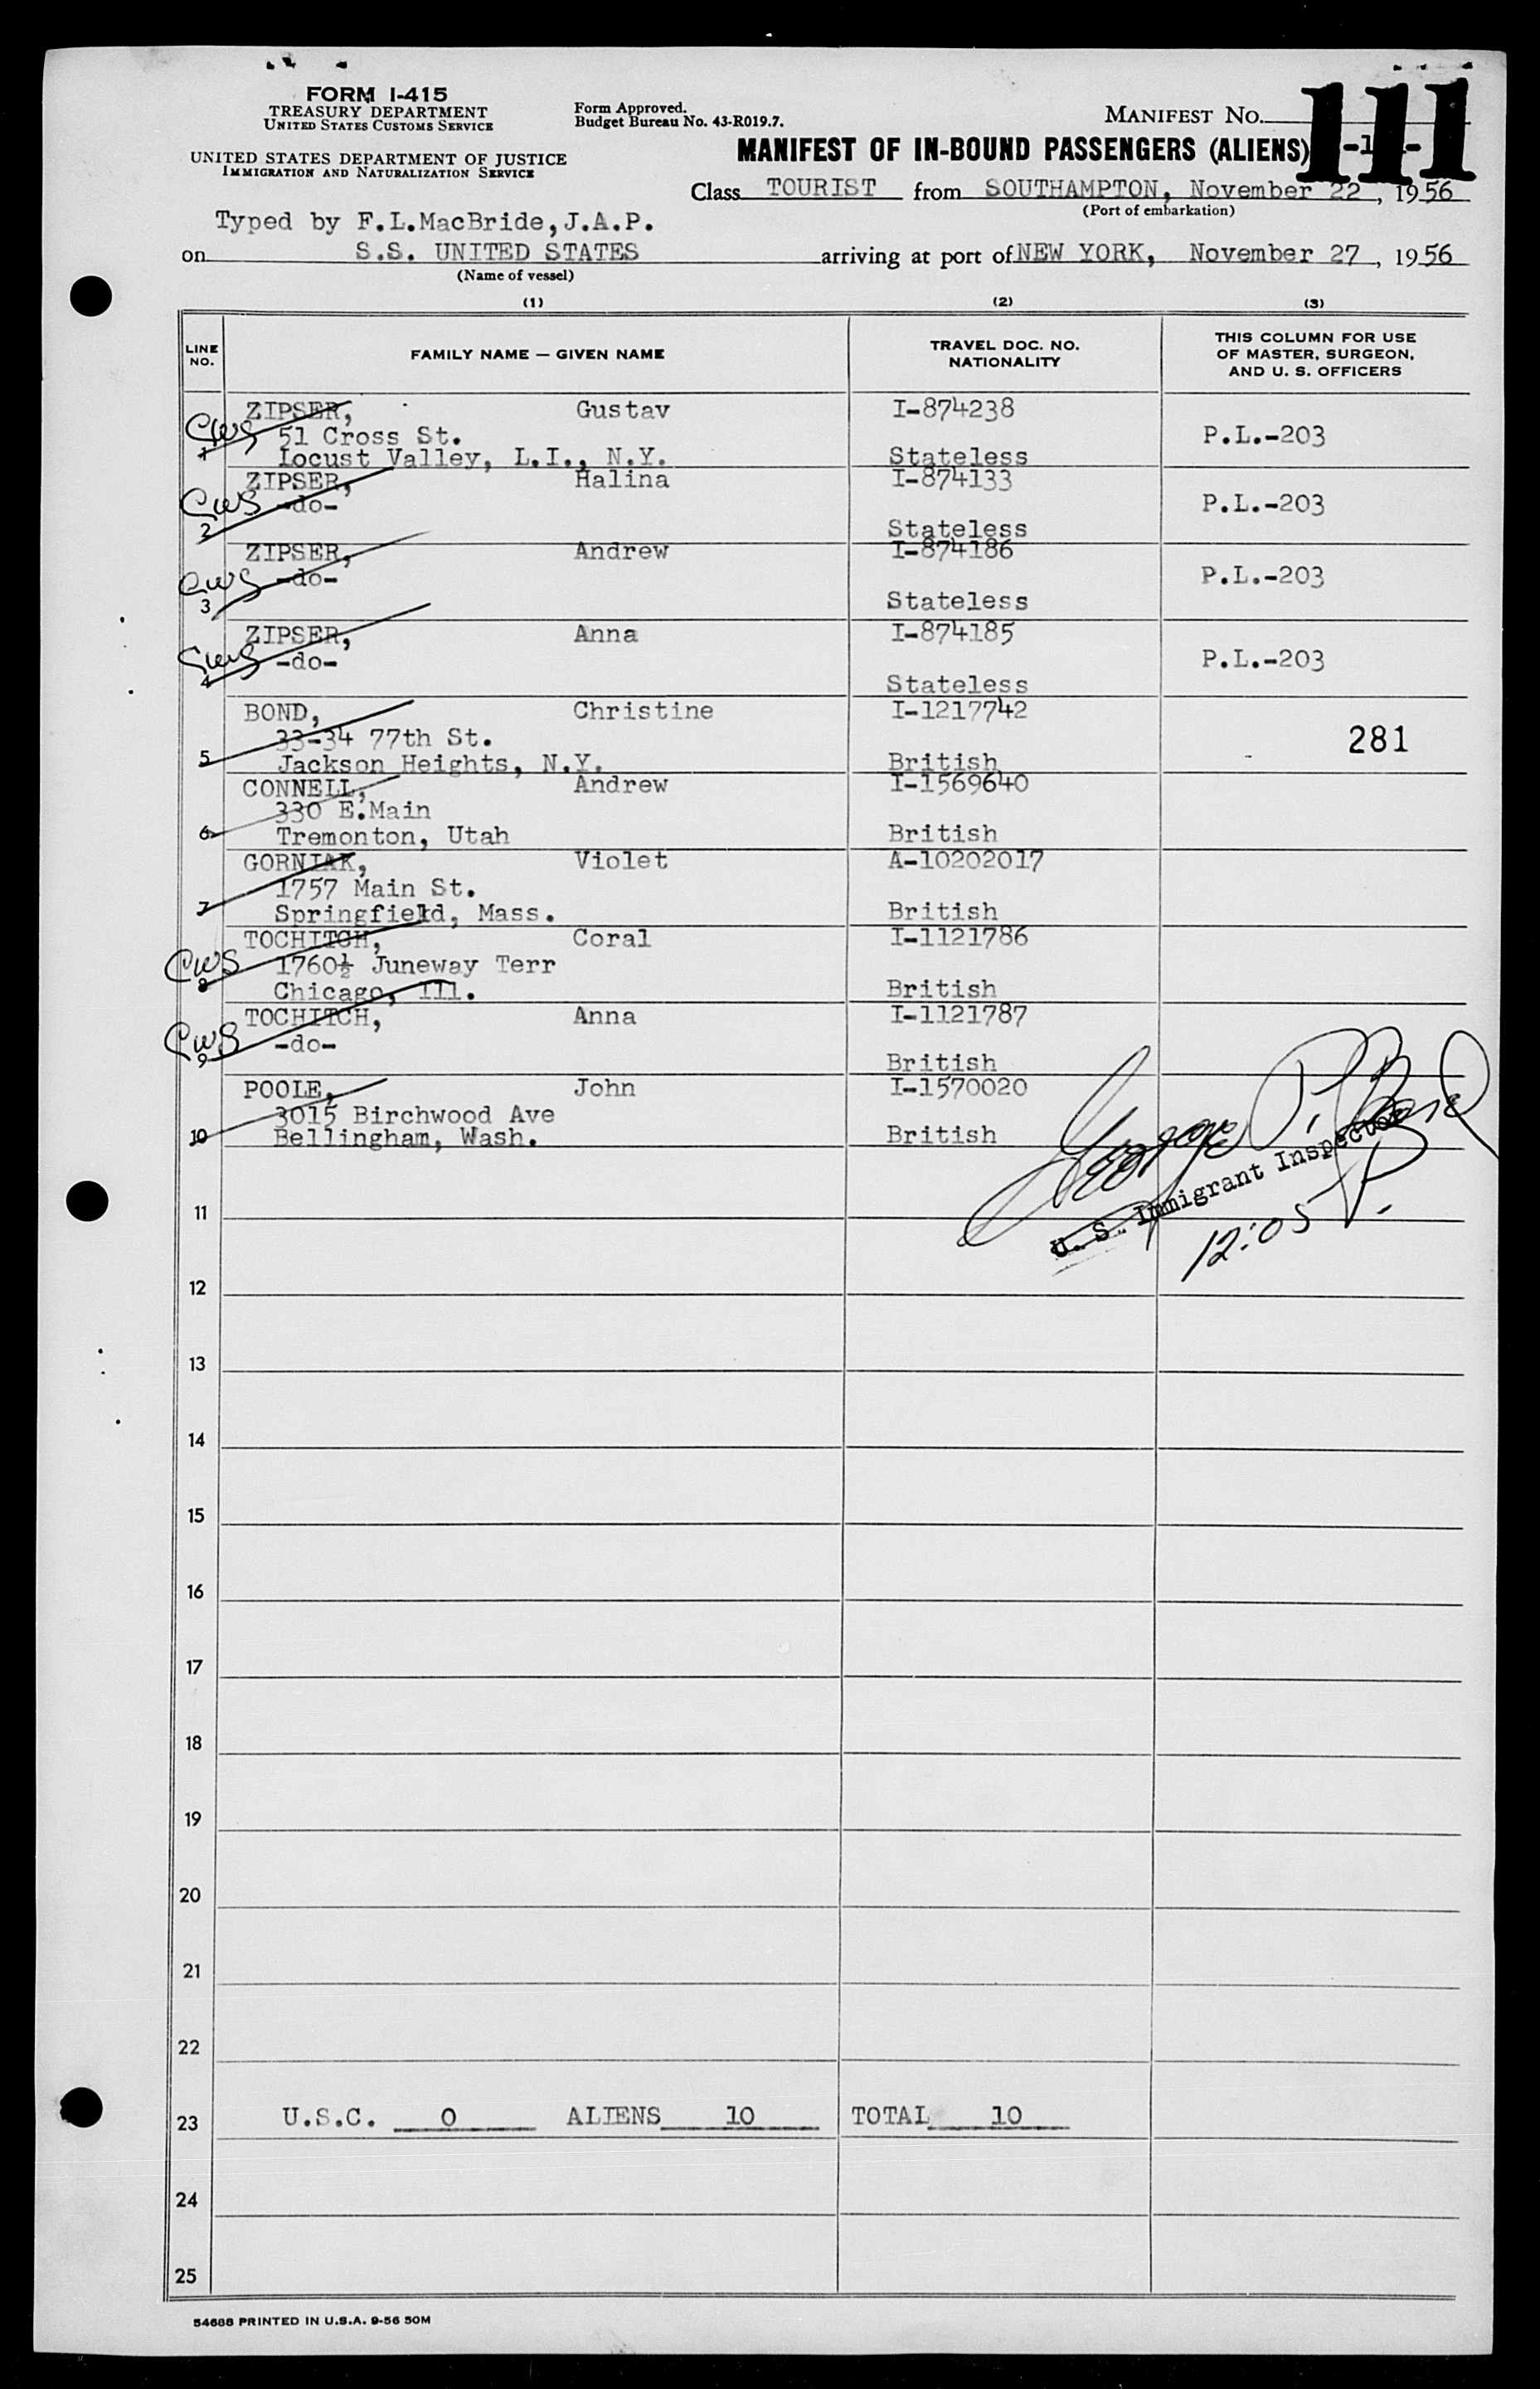 FORM I-415
TREASURY DEPARTMENT
UNITED STATES CUSTOMS SERVICE
UNITED STATES DEPARTMENT OF JUSTICE
IMMIGRATION AND NATURALIZATION SERVICE
Form Approved.
Budget Bureau No. 43-R019.7.
MANIFEST NO.
111
MANIFEST OF IN-BOUND PASSENGERS (ALIENS)
Class TOURIST from SOUTHAMPTON, November 22, 1956
(Port of embarkation)
Typed by F.L.MacBride,J.A.P.
on S.S. UNITED STATES arriving at port of NEW YORK, November 27, 1956
(Name of vessel)
(1) (2) (3)
LINE NO. FAMILY NAME — GIVEN NAME TRAVEL DOC. NO. NATIONALITY THIS COLUMN FOR USE OF MASTER, SURGEON, AND U. S. OFFICERS
ZIPSER, Gustav I-874238
CWS 51 Cross St. P.L.-203
1 Locust Valley, L.I., N.Y. Stateless
ZIPSER, Halina I-874133
CWS -do- P.L.-203
2 Stateless
ZIPSER, Andrew I-874186
CWS -do- P.L.-203
3 Stateless
ZIPSER, Anna I-874185
CWS -do- P.L.-203
4 Stateless
BOND, Christine I-1217742
33-34 77th St. 281
5 Jackson Heights, N.Y. British
CONNELL, Andrew I-1569640
330 E.Main
6 Tremonton, Utah British
GORNIAK, Violet A-10202017
1757 Main St.
7 Springfield, Mass. British
TOCHITCH, Coral I-1121786
CWS 1760½ Juneway Terr
8 Chicago, Ill. British
TOCHITCH, Anna I-1121787
CWS -do-
9 British
POOLE, John I-1570020
3015 Birchwood Ave
10 Bellingham, Wash. British
George P.
U. S. Immigrant Inspector
12:05 P.
11
12
13
14
15
16
17
18
19
20
21
22
23 U.S.C. 0 ALIENS 10 TOTAL 10
24
25
54688 PRINTED IN U.S.A. 9-56 50M